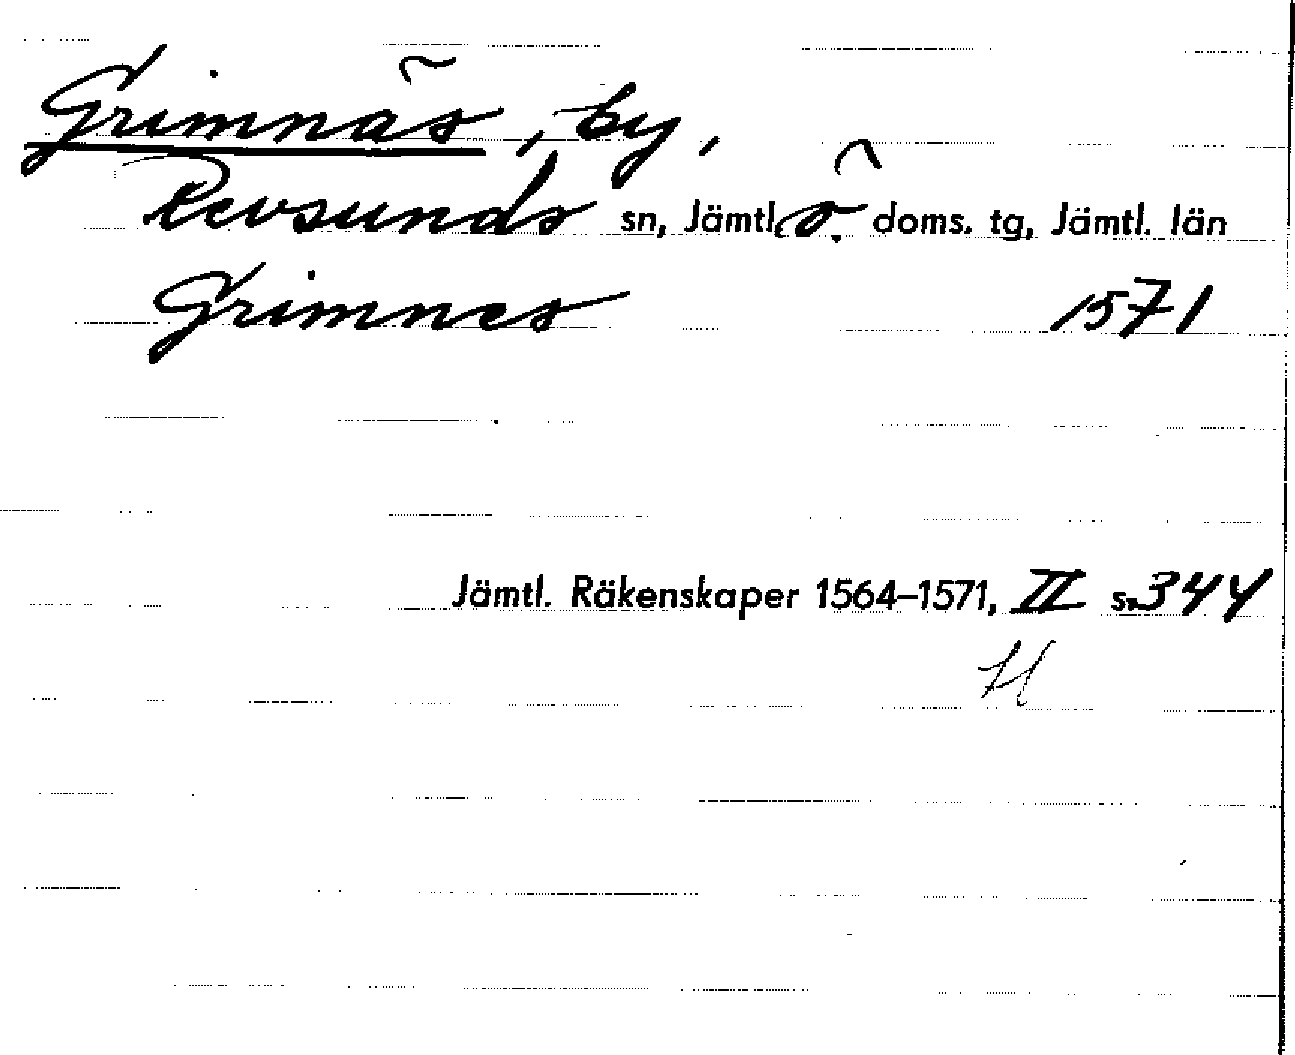 Grimnäs, by,
Revsunds sn, Jämtl. ö. doms. tg, Jämtl. län
Grimnes 1571
Jämtl. Räkenskaper 1564–1571, II s. 344
H